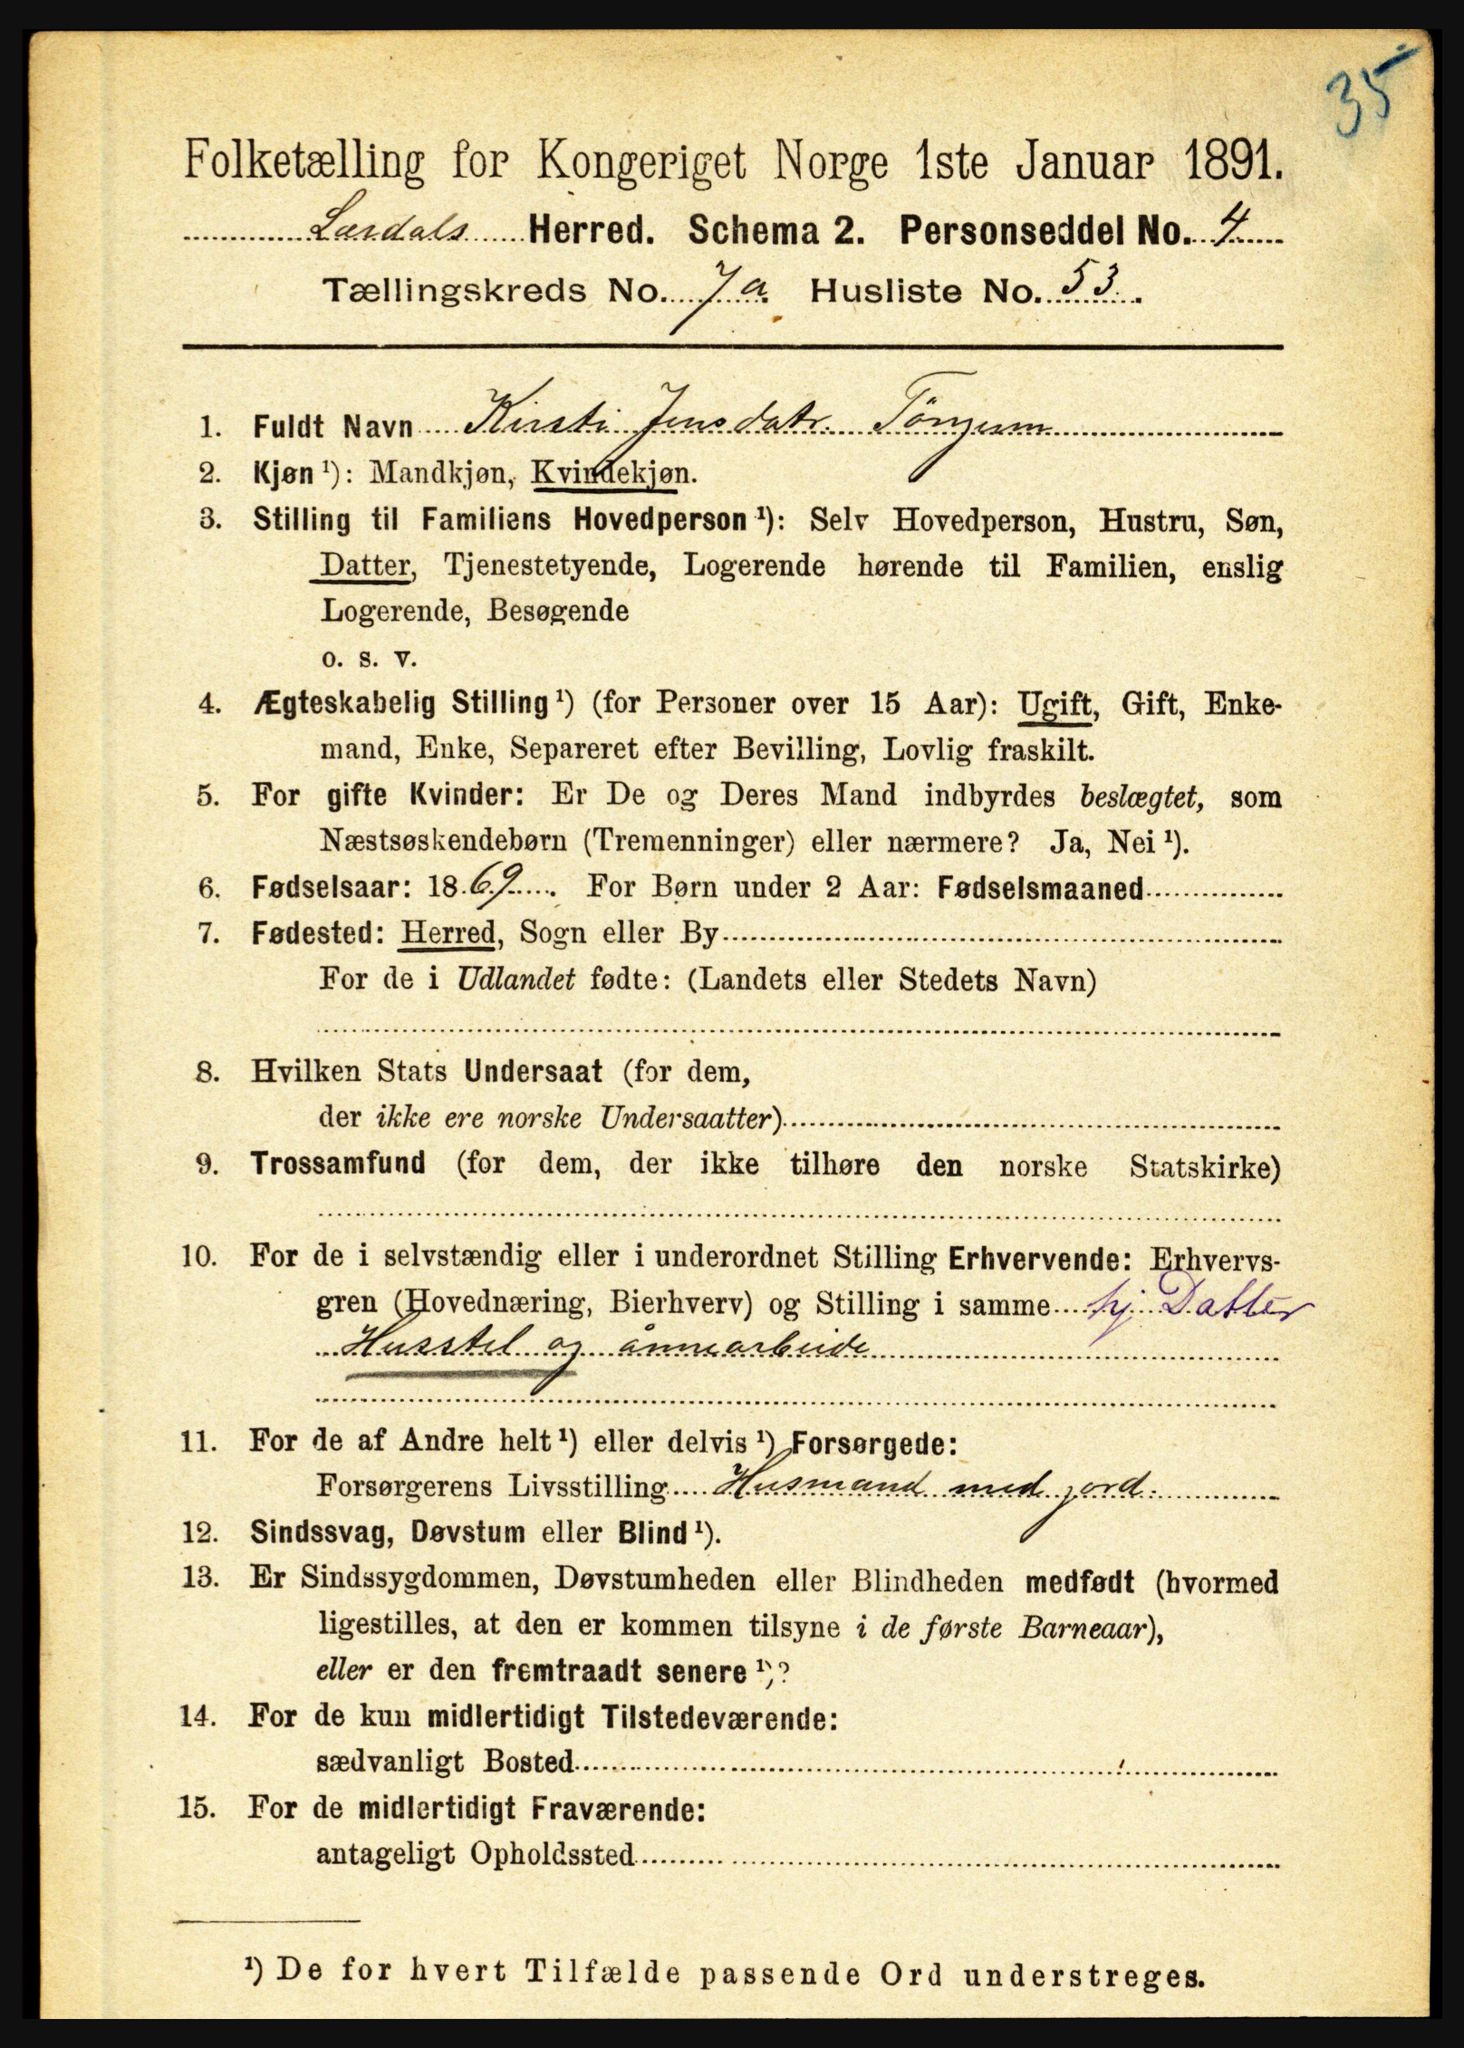 35
Folketælling for Kongeriget Norge 1ste Januar 1891.
Lærdals Herred. Schema 2. Personseddel No. 4
Tællingskreds No. 7a. Husliste No. 53.
1. Fuldt Navn Kirsti Jensdatr. Tönjum
2. Kjøn ¹): Mandkjøn, Kvindekjøn.
3. Stilling til Familiens Hovedperson ¹): Selv Hovedperson, Hustru, Søn,
Datter, Tjenestetyende, Logerende hørende til Familien, enslig
Logerende, Besøgende
o. s. v.
4. Ægteskabelig Stilling ¹) (for Personer over 15 Aar): Ugift, Gift, Enke-
mand, Enke, Separeret efter Bevilling, Lovlig fraskilt.
5. For gifte Kvinder: Er De og Deres Mand indbyrdes beslægtet, som
Næstsøskendebørn (Tremenninger) eller nærmere? Ja, Nei ¹).
6. Fødselsaar: 1869. For Børn under 2 Aar: Fødselsmaaned
7. Fødested: Herred, Sogn eller By
For de i Udlandet fødte: (Landets eller Stedets Navn)
8. Hvilken Stats Undersaat (for dem,
der ikke ere norske Undersaatter)
9. Trossamfund (for dem, der ikke tilhøre den norske Statskirke)
10. For de i selvstændig eller i underordnet Stilling Erhvervende: Erhvervs-
gren (Hovednæring, Bierhverv) og Stilling i samme hj. Datter
Husstel og ånnearbeide
11. For de af Andre helt ¹) eller delvis ¹) Forsørgede:
Forsørgerens Livsstilling Husmand med jord.
12. Sindssvag, Døvstum eller Blind ¹).
13. Er Sindssygdommen, Døvstumheden eller Blindheden medfødt (hvormed
ligestilles, at den er kommen tilsyne i de første Barneaar),
eller er den fremtraadt senere ¹)?
14. For de kun midlertidigt Tilstedeværende:
sædvanligt Bosted
15. For de midlertidigt Fraværende:
antageligt Opholdssted
¹) De for hvert Tilfælde passende Ord understreges.